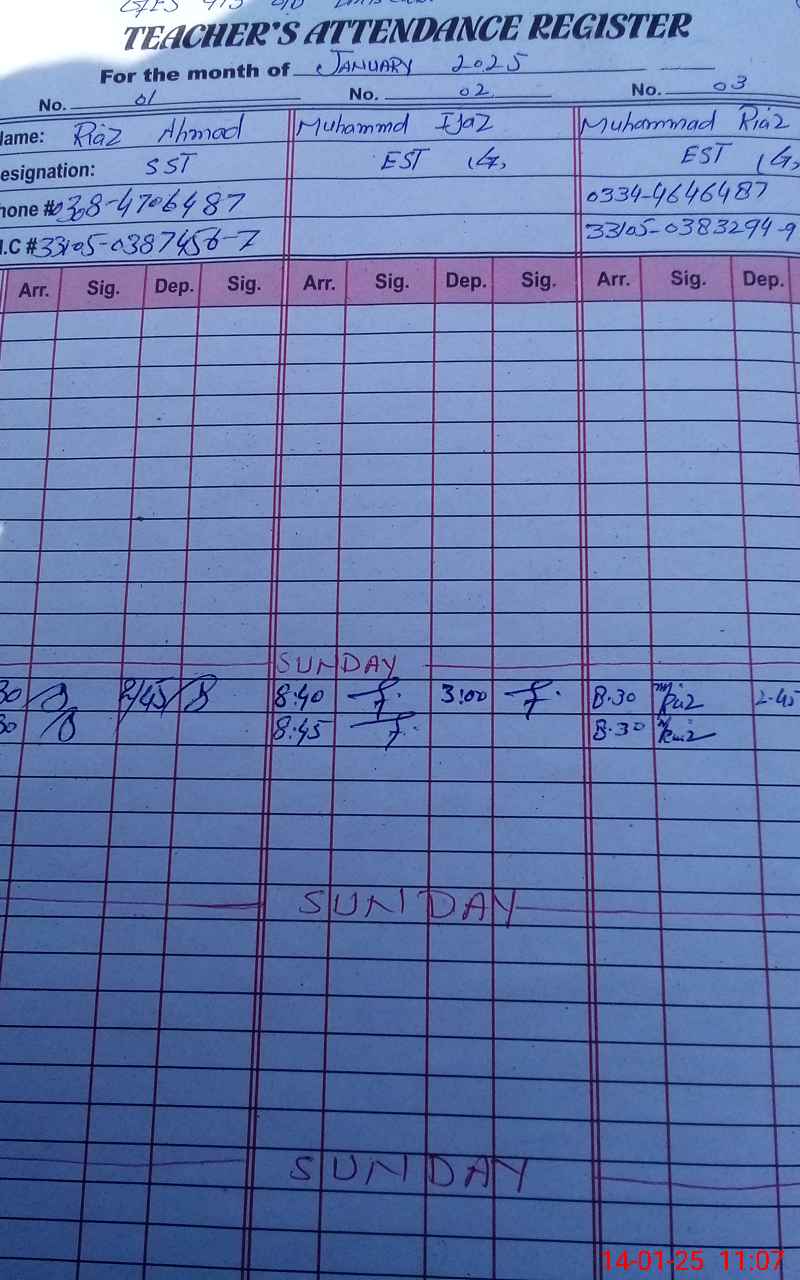 TEACHER'S ATTENDANCE REGISTER
For the month of JANUARY 2025
No. 01 No. 02 No. 03
Name: Riaz Ahmad Muhammd Ijaz Muhammad Riaz
esignation: SST EST EST
hone # 0308-4706487 0334-4646487
I.C # 33105-0387456-7 33105-0383294-9
Arr. Sig. Dep. Sig. Arr. Sig. Dep. Sig. Arr. Sig. Dep.
SUNDAY
30 2/45 8:40 3:00 8.30 Riaz 2-45
30 8:45 8.30 Riaz
SUNDAY
SUNDAY
14-01-25 11:07